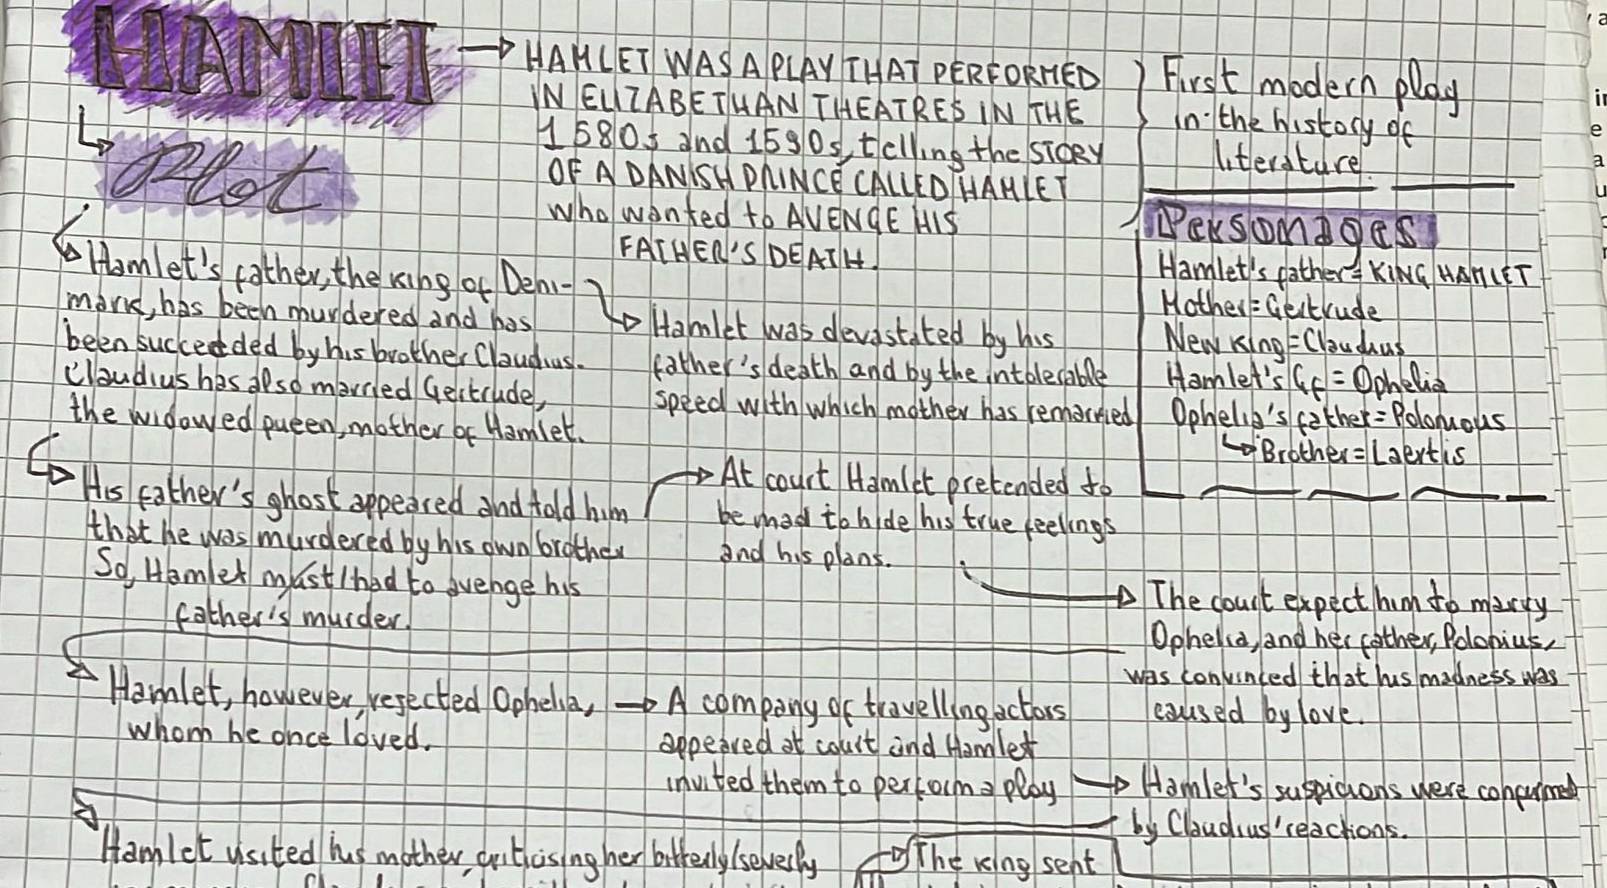 HAMLET
→ HAMLET WAS A PLAY THAT PERFORMED
IN ELIZABETHAN THEATRES IN THE
1580s and 1590s, telling the STORY
OF A DANISH PRINCE CALLED HAMLET
who wanted to AVENGE HIS
FATHER'S DEATH.
First modern play
in the history of
literature.
Plot
Personages
Hamlet's father = KING HAMLET
Mother = Gertrude
New King = Claudius
Hamlet's Gf = Ophelia
Ophelia's father = Polonious
↳ Brother = Laertis
Hamlet's father, the king of Den-
mark, has been murdered and has
been succeeded by his brother Claudius.
Claudius has also married Gertrude,
the widowed queen, mother of Hamlet.
Hamlet was devastated by his
father's death and by the intolerable
speed with which mother has remarried
His father's ghost appeared and told him
that he was murdered by his own brother
So, Hamlet must/had to avenge his
father's murder.
At court Hamlet pretended to
be mad to hide his true feelings
and his plans.
The court expect him to marry
Ophelia, and her father, Polonius,
was convinced that his madness was
caused by love.
Hamlet, however, rejected Ophelia,
whom he once loved.
→ A company of travelling actors
appeared at court and Hamlet
invited them to perform a play
→ Hamlet's suspicions were confirmed
by Claudius' reactions.
Hamlet visited his mother, criticising her bitterly/severly
The king sent